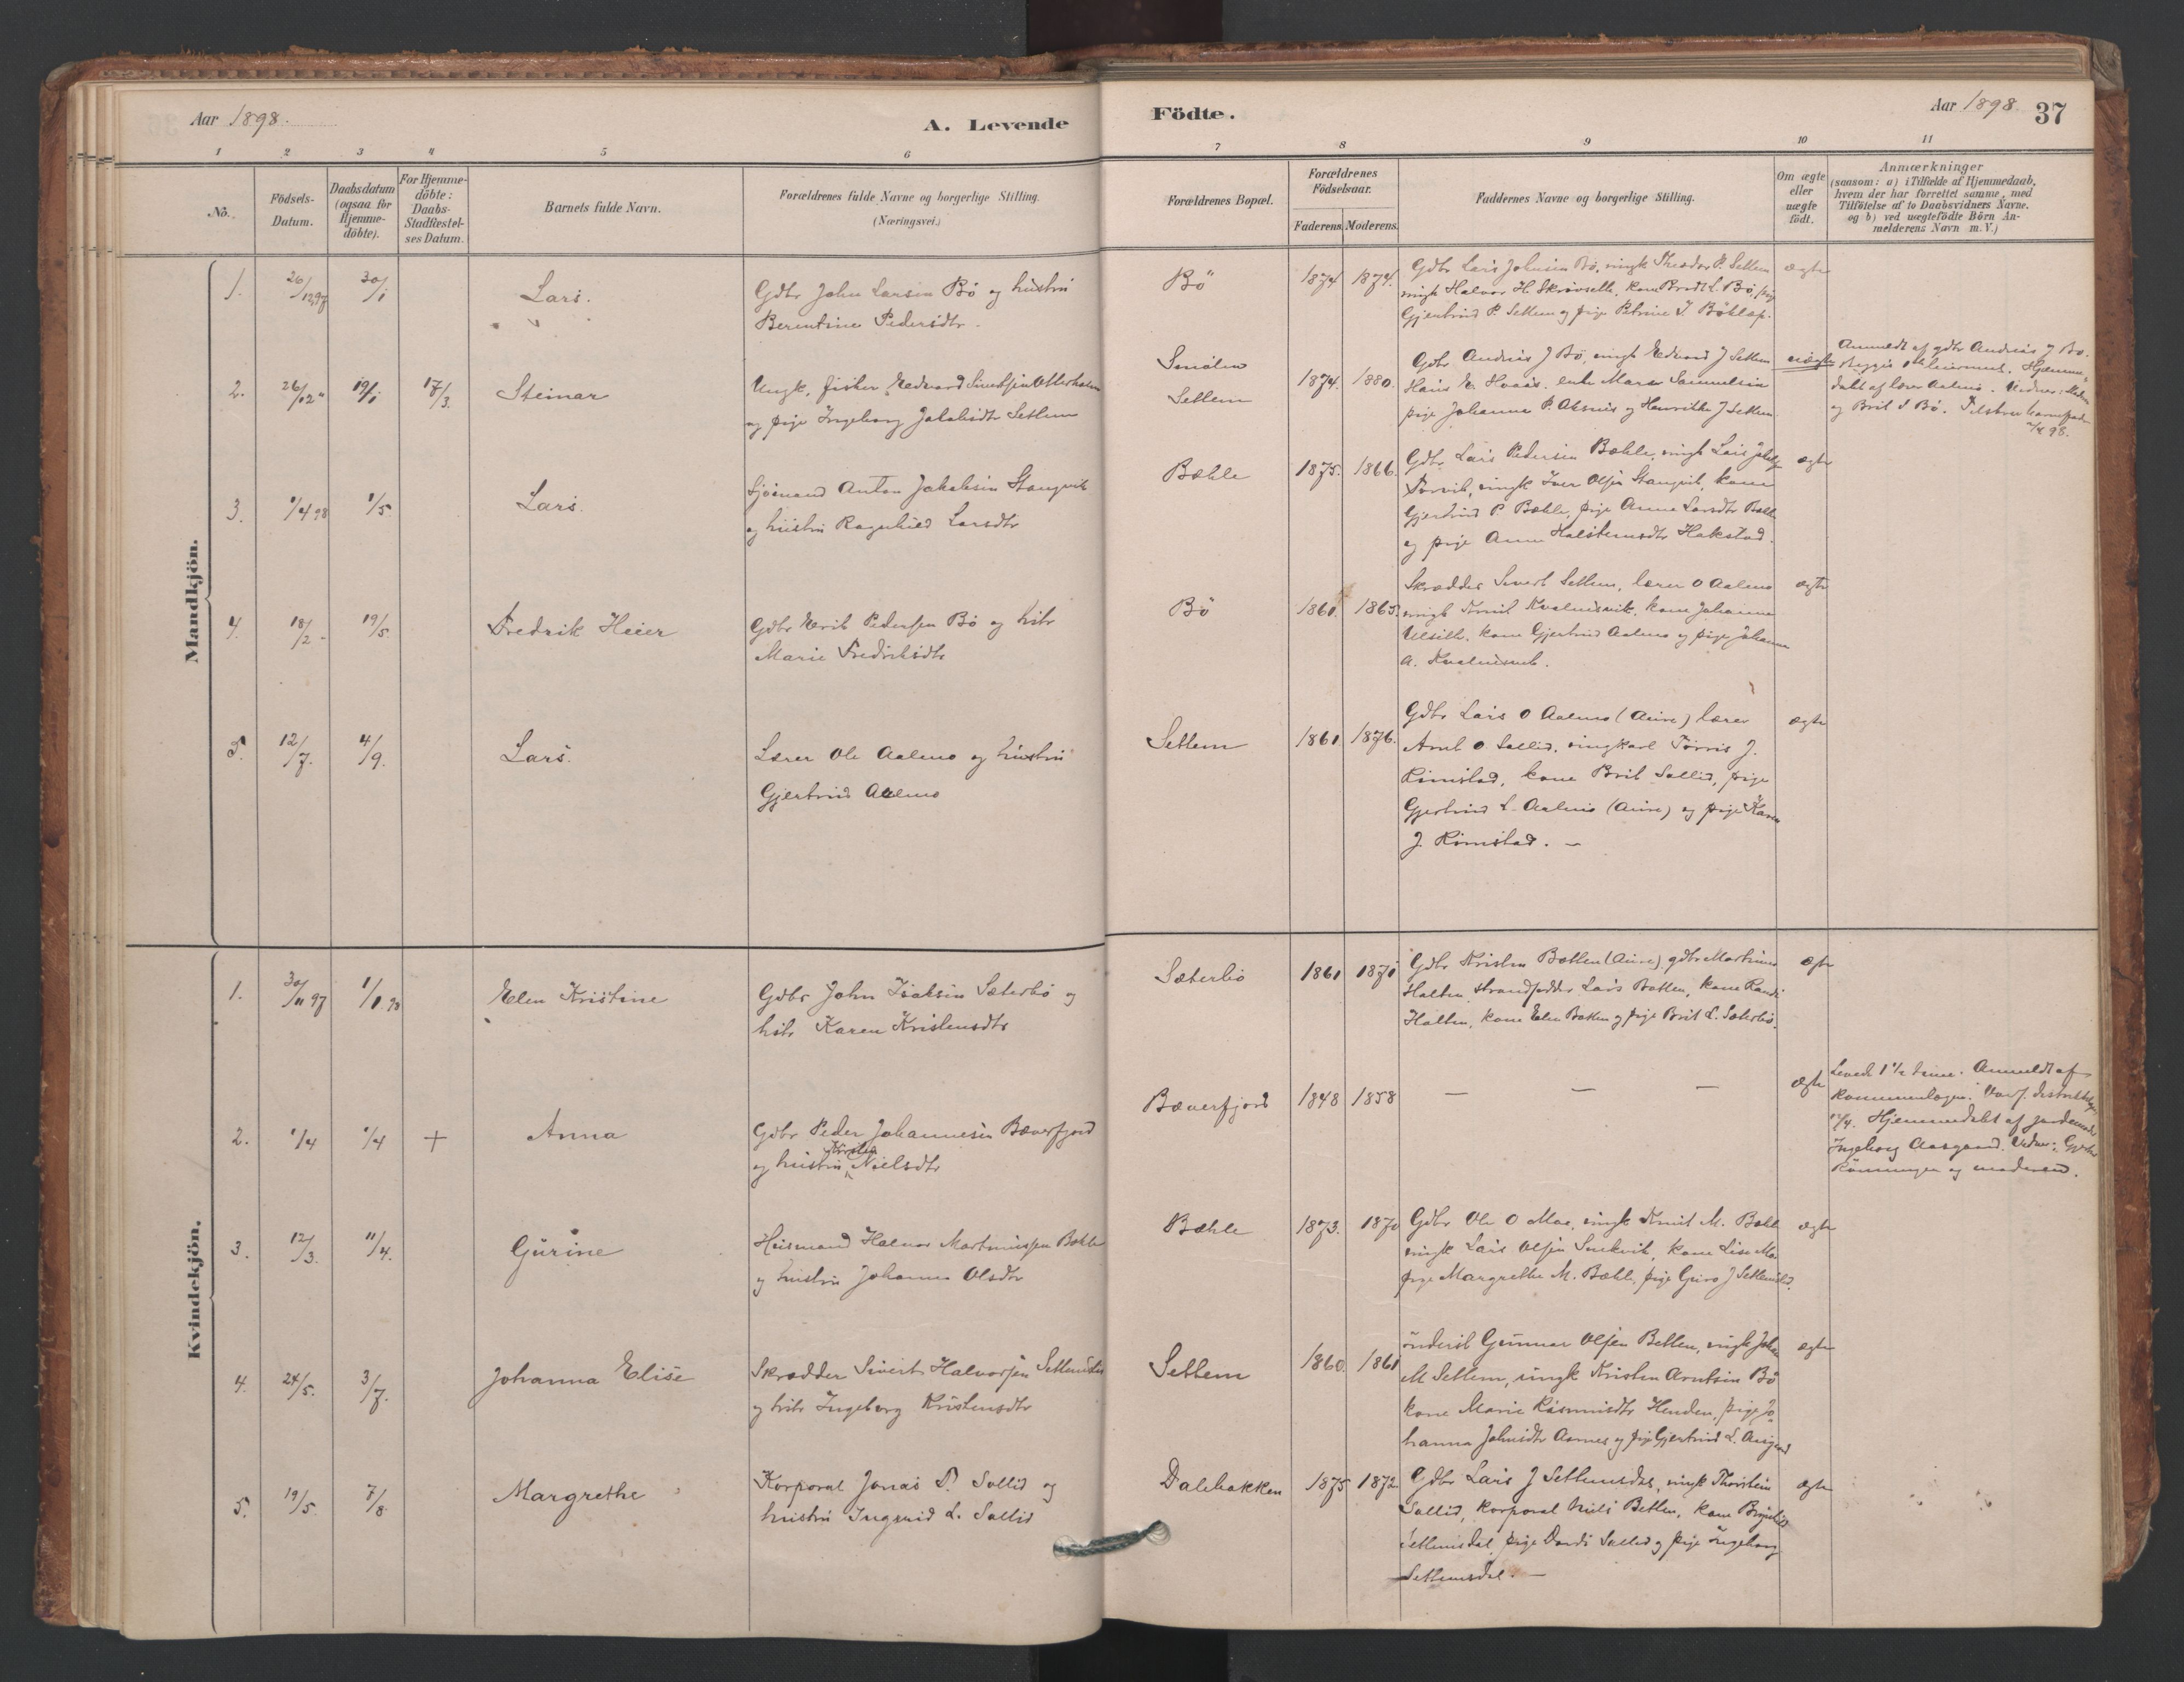 Aar 1898.
A. Levende
Födte.
Aar 1898.
37
1 2 3 4 5 6 7 8 9 10 11
No.
Födsels-
Datum.
Daabsdatum
(ogsaa for
Hjemme-
döbte).
For Hjemme-
döbte:
Daabs-
Stadfæstel-
ses Datum.
Barnets fulde Navn.
Forældrenes fulde Navne og borgerlige Stilling.
(Næringsvei.)
Forældrenes Bopæl.
Forældrenes
Födselsaar.
Faderens. Moderens.
Faddernes Navne og borgerlige Stilling.
Om ægte
eller
uægte
födt.
Anmærkninger
(saasom: a) i Tilfælde af Hjemmedaab,
hvem der har forrettet samme, med
Tilföielse af to Daabsvidners Navne.
og b) ved uægtefödte Börn An-
melderens Navn m. V.)
Mandkjön.
1. 26/12 97 30/1 Lars.
Gdbr John Larsen Bö og hustru
Berentine Pedersdtr.
Bö 1874 1874.
Gdbr Lars Johnsen Bö, ungk Theodor P. Settem
ungk Halvor H. Skrövseth, kone Brodt L. Bö, pige
Gjertrud P. Settem og pige Petrine J.
ægte
2. 26/12 " 19/1 17/3. Steinar
Ungk. fisker Nedvard Sivertsen Otterholm
og pige Ingeborg Jakobsdtr Settem
Smölen
Settem
1874. 1880.
Gdbr Andreas J Bö, ungk Edvard J Settem
Hans E. enke Maren Samuelsen
pige Johanna P. Aksnes og Henrikke J Settem
uægte
Anmeldt af gdbr Andreas J Bö.
Hjemme-
döbt af lærer Aalmo. Vidner: Moderen
og Brit J Bö.
3. 1/4 98 1/5 Lars.
Sjömand Anton Jakobsen Stangvik
og hustru Ragnhild Larsdtr
Bæhle 1875. 1866.
Gdbr Lars Pedersen Bæhle, ungk Lars
Torvik, ungk Iver Olsen Stangvik, kone
Gjertrud P Bæhle, pige Anne Larsdtr Bæhle
og pige Anne Halstensdtr Hakstad.
ægte
4. 18/2 - 19/5. Fredrik Heier
Gdbr Erik Pedersen Bö og hstr
Marie Fredriksdtr
Bö 1861. 1865.
Skrædder Sivert Settem, lærer O Aalmo
ungk Knut Kvalnesvik, kone Johanna
kone Gjertrud Aalmo og pige Johanna
A. Kvalnesvik.
ægte
5. 12/7. 4/9. Lars.
Lærer Ole Aalmo og hustru
Gjertrud Aalmo
Settem 1861 1876.
Gdbr Lars O Aalmo (Aure) lærer
Arnt O Sollid, ungkarl Törris J.
Römstad, kone Brit Sollid, pige
Gjertrud L. Aalmo (Aure) og pige Karen
J. Römstad. -
ægte
Kvindekjön.
1. 30/11 97 1/1 98 Elen Kristine
Gdbr John Isaksen Sæterbö og
hstr Karen Kristensdtr
Sæterbö 1861 1871
Gdbr Kristen Botten (Aure) gdbr Martinus
Halten, strandsidder Lars Botten, kone Randi
Halten, kone Elen Botten og pige Brit L. Sæterbö.
ægte
2. 1/4 1/4 + Anna
Gdbr Peder Johannesen Bæverfjord
og hustru Kirsten Nielsdtr
Bæverfjord 1848 1858
— — —
ægte
Levede 1 1/2 time. Anmeldt af
kommunelægen.
12/4. Hjemmedöbt af jordemoder
Ingeborg Aasgaard. Vidner:
Rönningen og moderen.
3. 12/3. 11/4. Gurine
Husmand Halvor Martinussen Bæhle
og hustru Johanna Olsdtr
Bæhle 1873. 1870
Gdbr Ole O Moe, ungk Knut M. Bæhle
ungk Lars Olsen kone Lise Moe
pige Margrethe M. Bæhle, pige Guro J Settemsdal.
ægte
4. 24/5. 3/7. Johanna Elise
Skrædder Sivert Halvorsen Settemsdal
og hstr Ingeborg Kristensdtr
Settem 1860. 1861
Gunnar Olsen Betten, ungk John
M Settem, ungk Kristen Arntsen Bö
kone Marie Rasmusdtr Henden, pige Jo-
hanna Johnsdtr Aasnes og pige Gjertrud L.
ægte
5. 19/5. 7/8 Margrethe
Korporal Jonas T. Sollid og
hustru Ingrid L. Sollid
Dalebakken 1875 1872
Gdbr Lars J Settemsdal, ungk Thorstein
Sollid, korporal Nils Betten, kone
Settemsdal, pige Dordi Sollid og pige Ingeborg
Settemsdal. —
ægte